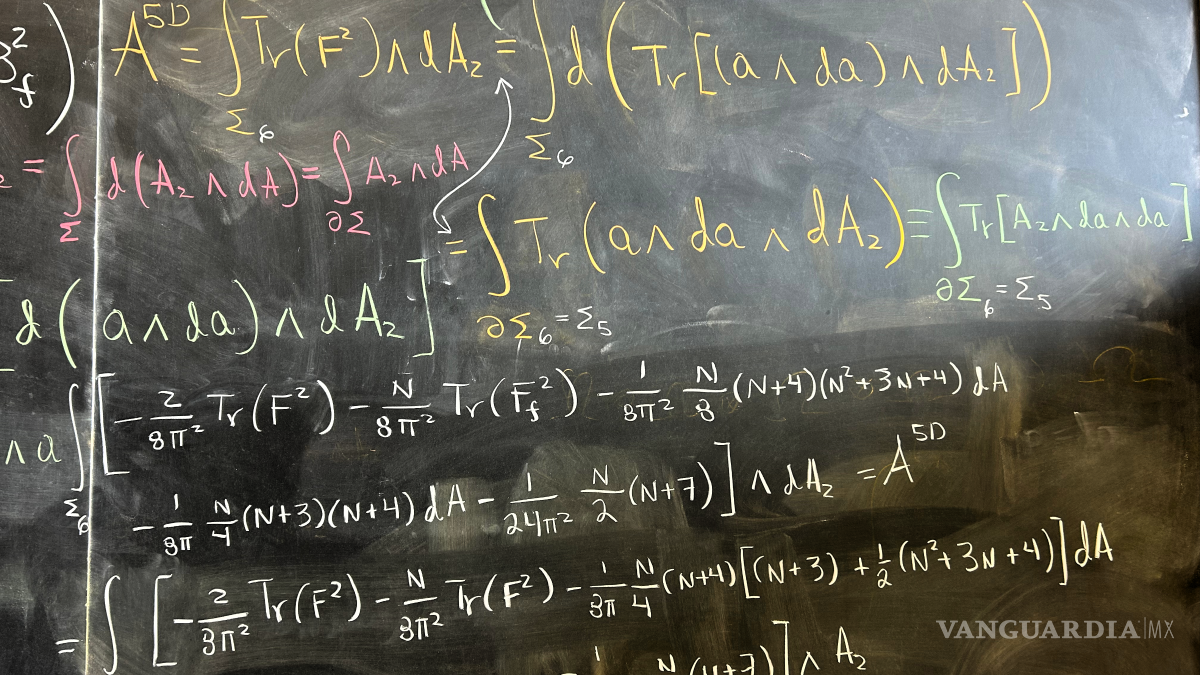 B_f^2 )
A^{5D} = ∫_{Σ_6} Tr(F²) ∧ dA_2 = ∫_{Σ_6} d( Tr[(a ∧ da) ∧ dA_2] )
_2 = ∫_Σ d(A_2 ∧ dA) = ∫_{∂Σ} A_2 ∧ dA
= ∫_{∂Σ_6 = Σ_5} Tr(a ∧ da ∧ dA_2) ≡ ∫_{∂Σ_6 = Σ_5} Tr[A_2 ∧ da ∧ da]
d(a ∧ da) ∧ dA_2 ]
∧ a
∫_{Σ_6} [ - 2/8π² Tr(F²) - N/8π² Tr(F_f²) - 1/8π² N/8 (N+4)(N²+3N+4) dA
- 1/8π N/4 (N+3)(N+4) dA - 1/24π² N/2 (N+7) ] ∧ dA_2 = A^{5D}
= ∫ [ - 2/8π² Tr(F²) - N/8π² Tr(F²) - 1/8π N/4 (N+4)[(N+3) + 1/2 (N²+3N+4)] dA
1 N (N+7) ] ∧ A_2
VANGUARDIA|MX